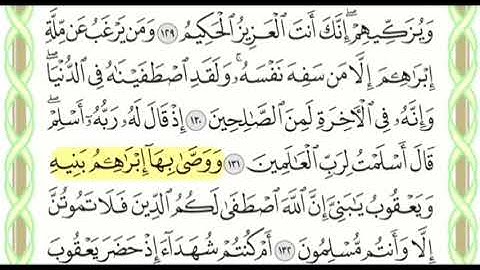 وَيُزَكِّيهِمْ ۚ إِنَّكَ أَنتَ ٱلْعَزِيزُ ٱلْحَكِيمُ ١٢٩ وَمَن يَرْغَبُ عَن مِّلَّةِ
إِبْرَٰهِـۧمَ إِلَّا مَن سَفِهَ نَفْسَهُۥ ۚ وَلَقَدِ ٱصْطَفَيْنَٰهُ فِى ٱلدُّنْيَا ۖ
وَإِنَّهُۥ فِى ٱلْـَٔاخِرَةِ لَمِنَ ٱلصَّٰلِحِينَ ١٣٠ إِذْ قَالَ لَهُۥ رَبُّهُۥٓ أَسْلِمْ ۖ
قَالَ أَسْلَمْتُ لِرَبِّ ٱلْعَٰلَمِينَ ١٣١ وَوَصَّىٰ بِهَآ إِبْرَٰهِـۧمُ بَنِيهِ
وَيَعْقُوبُ يَٰبَنِىَّ إِنَّ ٱللَّهَ ٱصْطَفَىٰ لَكُمُ ٱلدِّينَ فَلَا تَمُوتُنَّ
إِلَّا وَأَنتُم مُّسْلِمُونَ ١٣٢ أَمْ كُنتُمْ شُهَدَآءَ إِذْ حَضَرَ يَعْقُوبَ